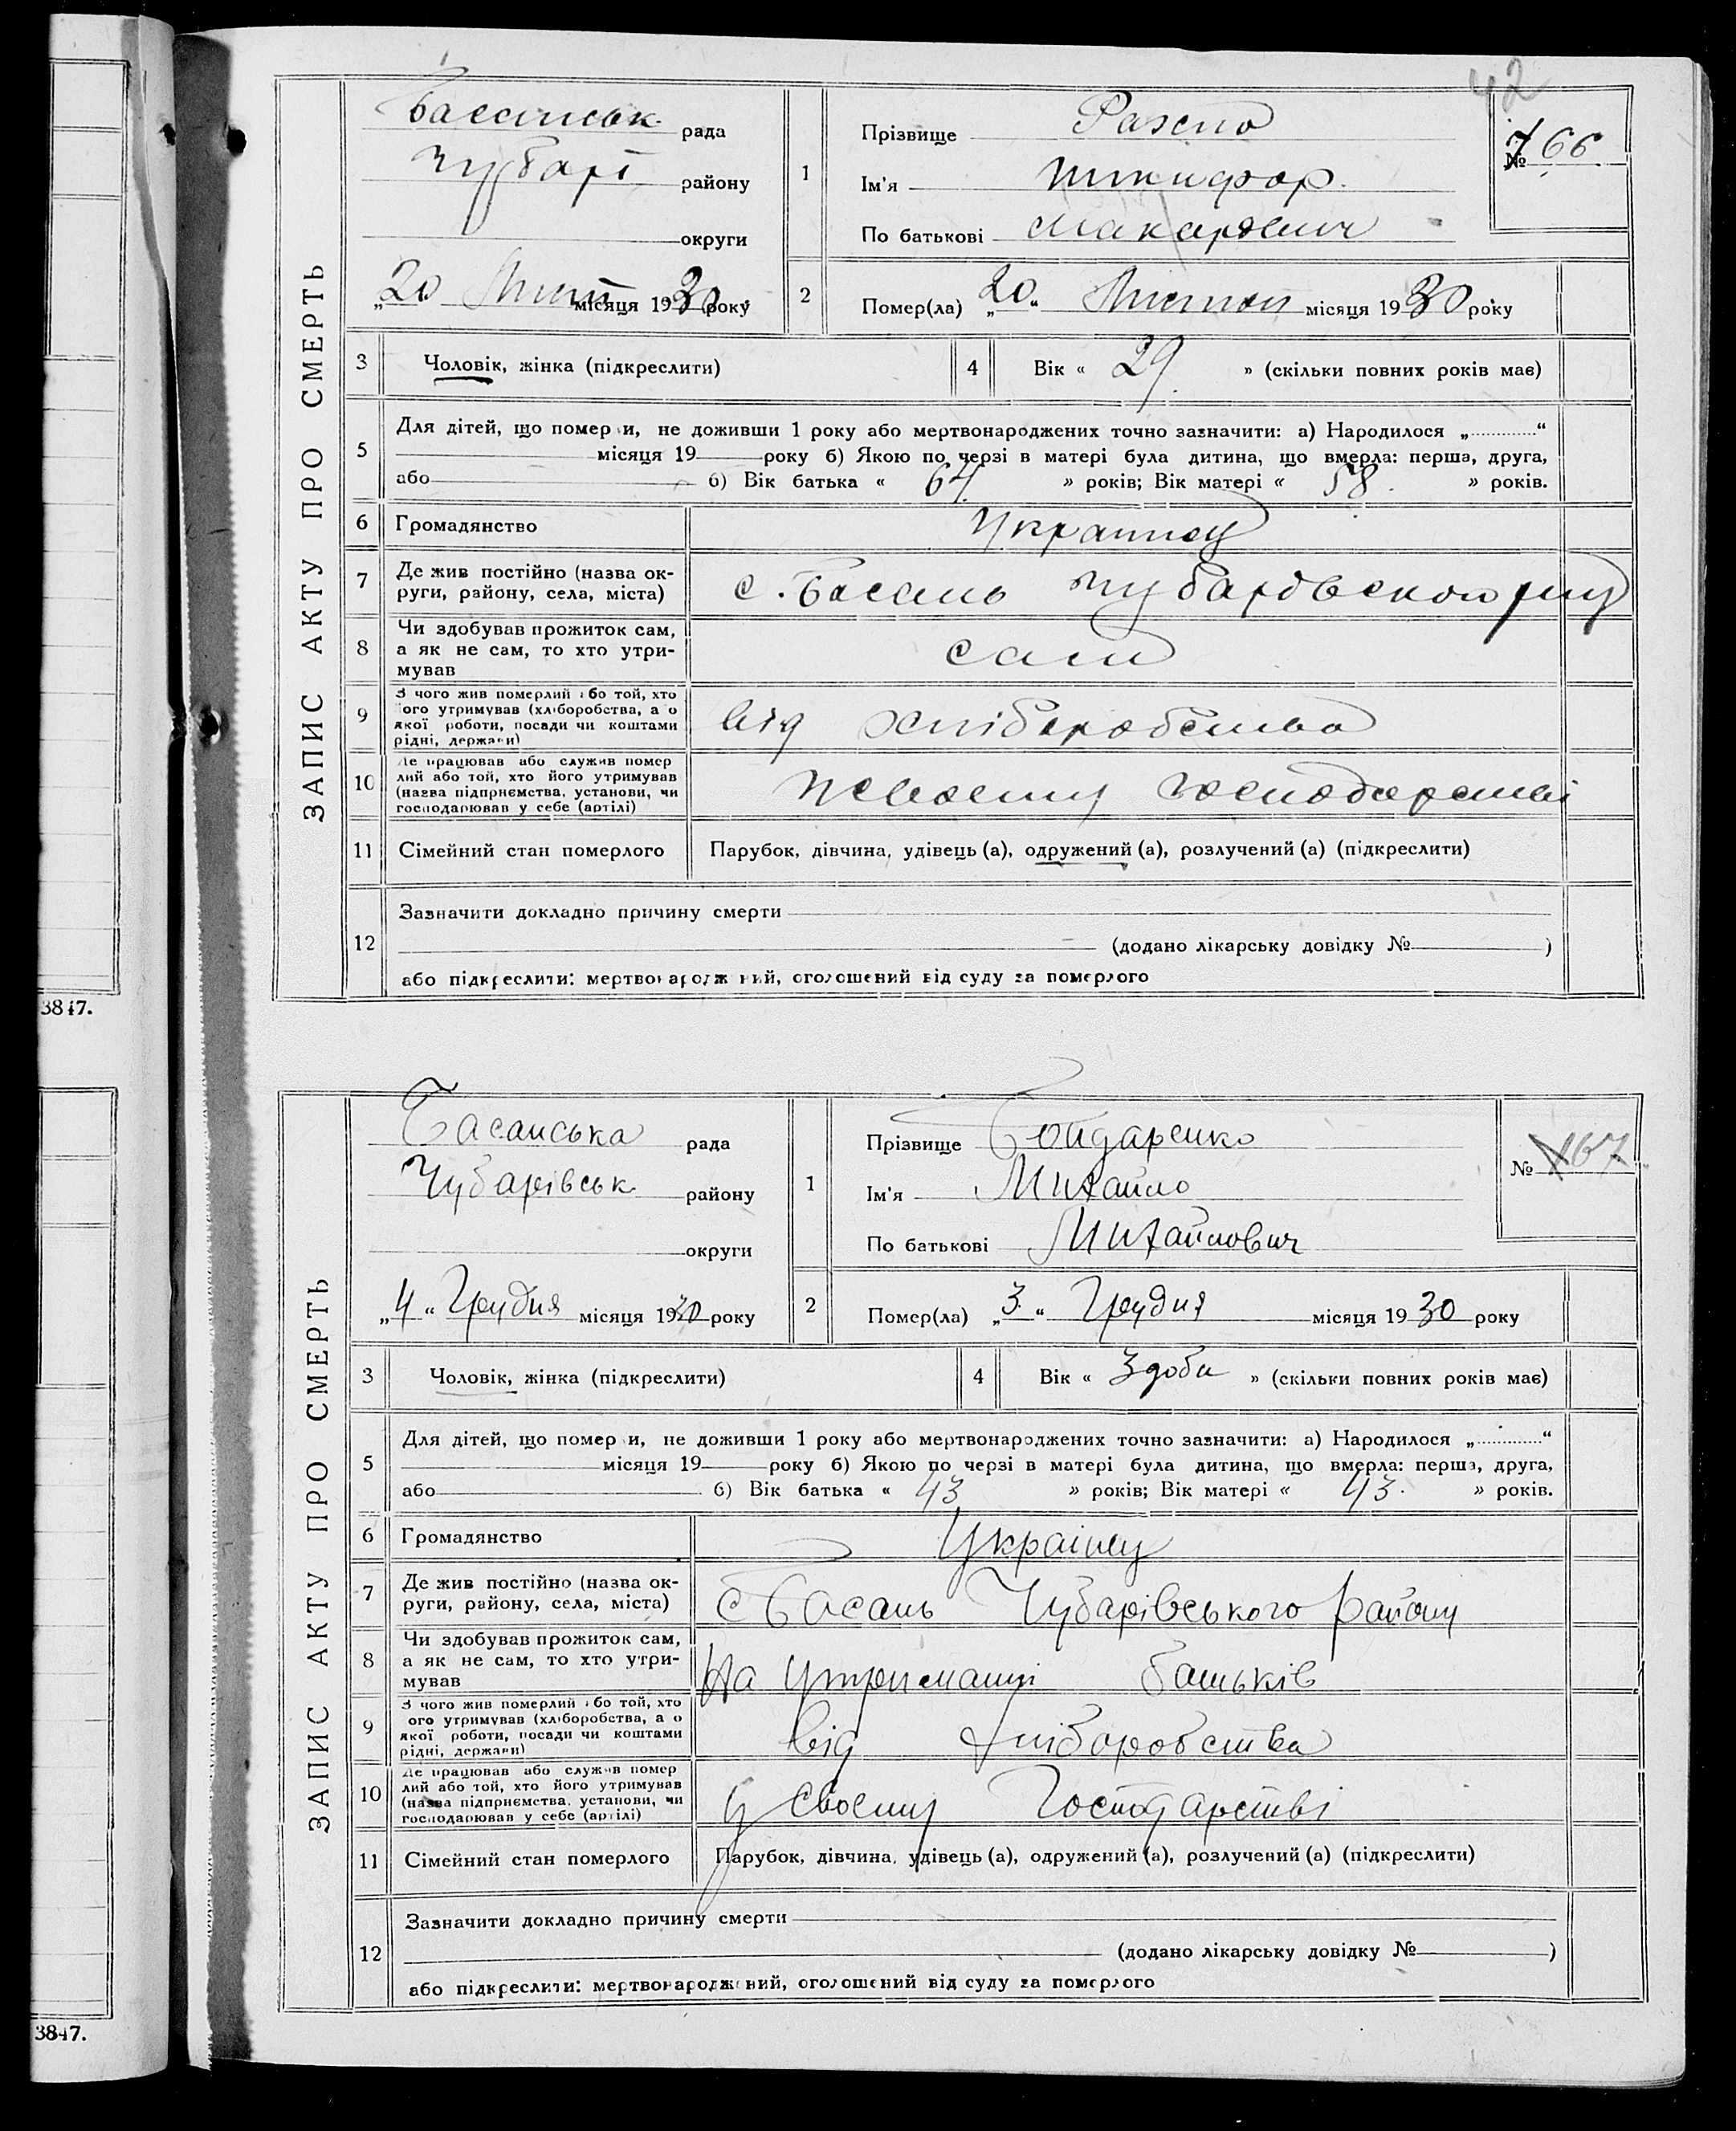 42
ЗАПИС АКТУ ПРО СМЕРТЬ
Басанськ рада
Чубарі району
округи
„20 Лист місяця 1930 року
1
Прізвище
Ім'я Никифор
По батькові Макарович
№ 66
2
Помер(ла) „20“ Листоп місяця 1930 року
3
Чоловік, жінка (підкреслити)
4
Вік « 29 » (скільки повних років має)
5
Для дітей, що помер и, не доживши 1 року або мертвонароджених точно зазначити: а) Народилося „ “
місяця 19 року б) Якою по черзі в матері була дитина, що вмерла: перша, друга,
або б) Вік батька « 64 » років; Вік матері « 58 » років.
6
Громадянство
7
Де жив постійно (назва ок-
руги, району, села, міста)
с. Басань Чубаровском
8
Чи здобував прожиток сам,
а як не сам, то хто утри-
мував
сам
9
З чого жив померлий або той, хто
його утримував (хліборобства, а о
якої роботи, посади чи коштами
рідні, держави)
від хліборобства
10
Де працював або служив помер
лий або той, хто його утримував
(назва підприємства, установи, чи
господарював у себе (артілі)
господарстві
11
Сімейний стан померлого
Парубок, дівчина, удівець (а), одружений (а), розлучений (а) (підкреслити)
12
Зазначити докладно причину смерти
(додано лікарську довідку № )
або підкреслити: мертвонароджений, оголошений від суду за померлого
3847.
ЗАПИС АКТУ ПРО СМЕРТЬ
Басанська рада
Чубарівськ району
округи
„4“ Грудня місяця 1930 року
1
Прізвище Бондаренко
Ім'я Михайло
По батькові Михайлович
№ 67
2
Помер(ла) „3“ Грудня місяця 1930 року
3
Чоловік, жінка (підкреслити)
4
Вік « 3 доби » (скільки повних років має)
5
Для дітей, що помер и, не доживши 1 року або мертвонароджених точно зазначити: а) Народилося „ “
місяця 19 року б) Якою по черзі в матері була дитина, що вмерла: перша, друга,
або б) Вік батька « 43 » років; Вік матері « 43 » років.
6
Громадянство
Українец
7
Де жив постійно (назва ок-
руги, району, села, міста)
с Басань Чубарівського району
8
Чи здобував прожиток сам,
а як не сам, то хто утри-
мував
На утриманні батьків
9
З чого жив померлий або той, хто
ого утримував (хліборобства, а о
якої роботи, посади чи коштами
рідні, держави)
від хліборобства
10
Де працював або служив помер
лий або той, хто його утримував
(назва підприємства, установи, чи
господарював у себе (артілі)
у своему господарстві
11
Сімейний стан померлого
Парубок, дівчина, удівець (а), одружений (а), розлучений (а) (підкреслити)
12
Зазначити докладно причину смерти
(додано лікарську довідку № )
або підкреслити: мертвонароджений, оголошений від суду за померлого
3847.